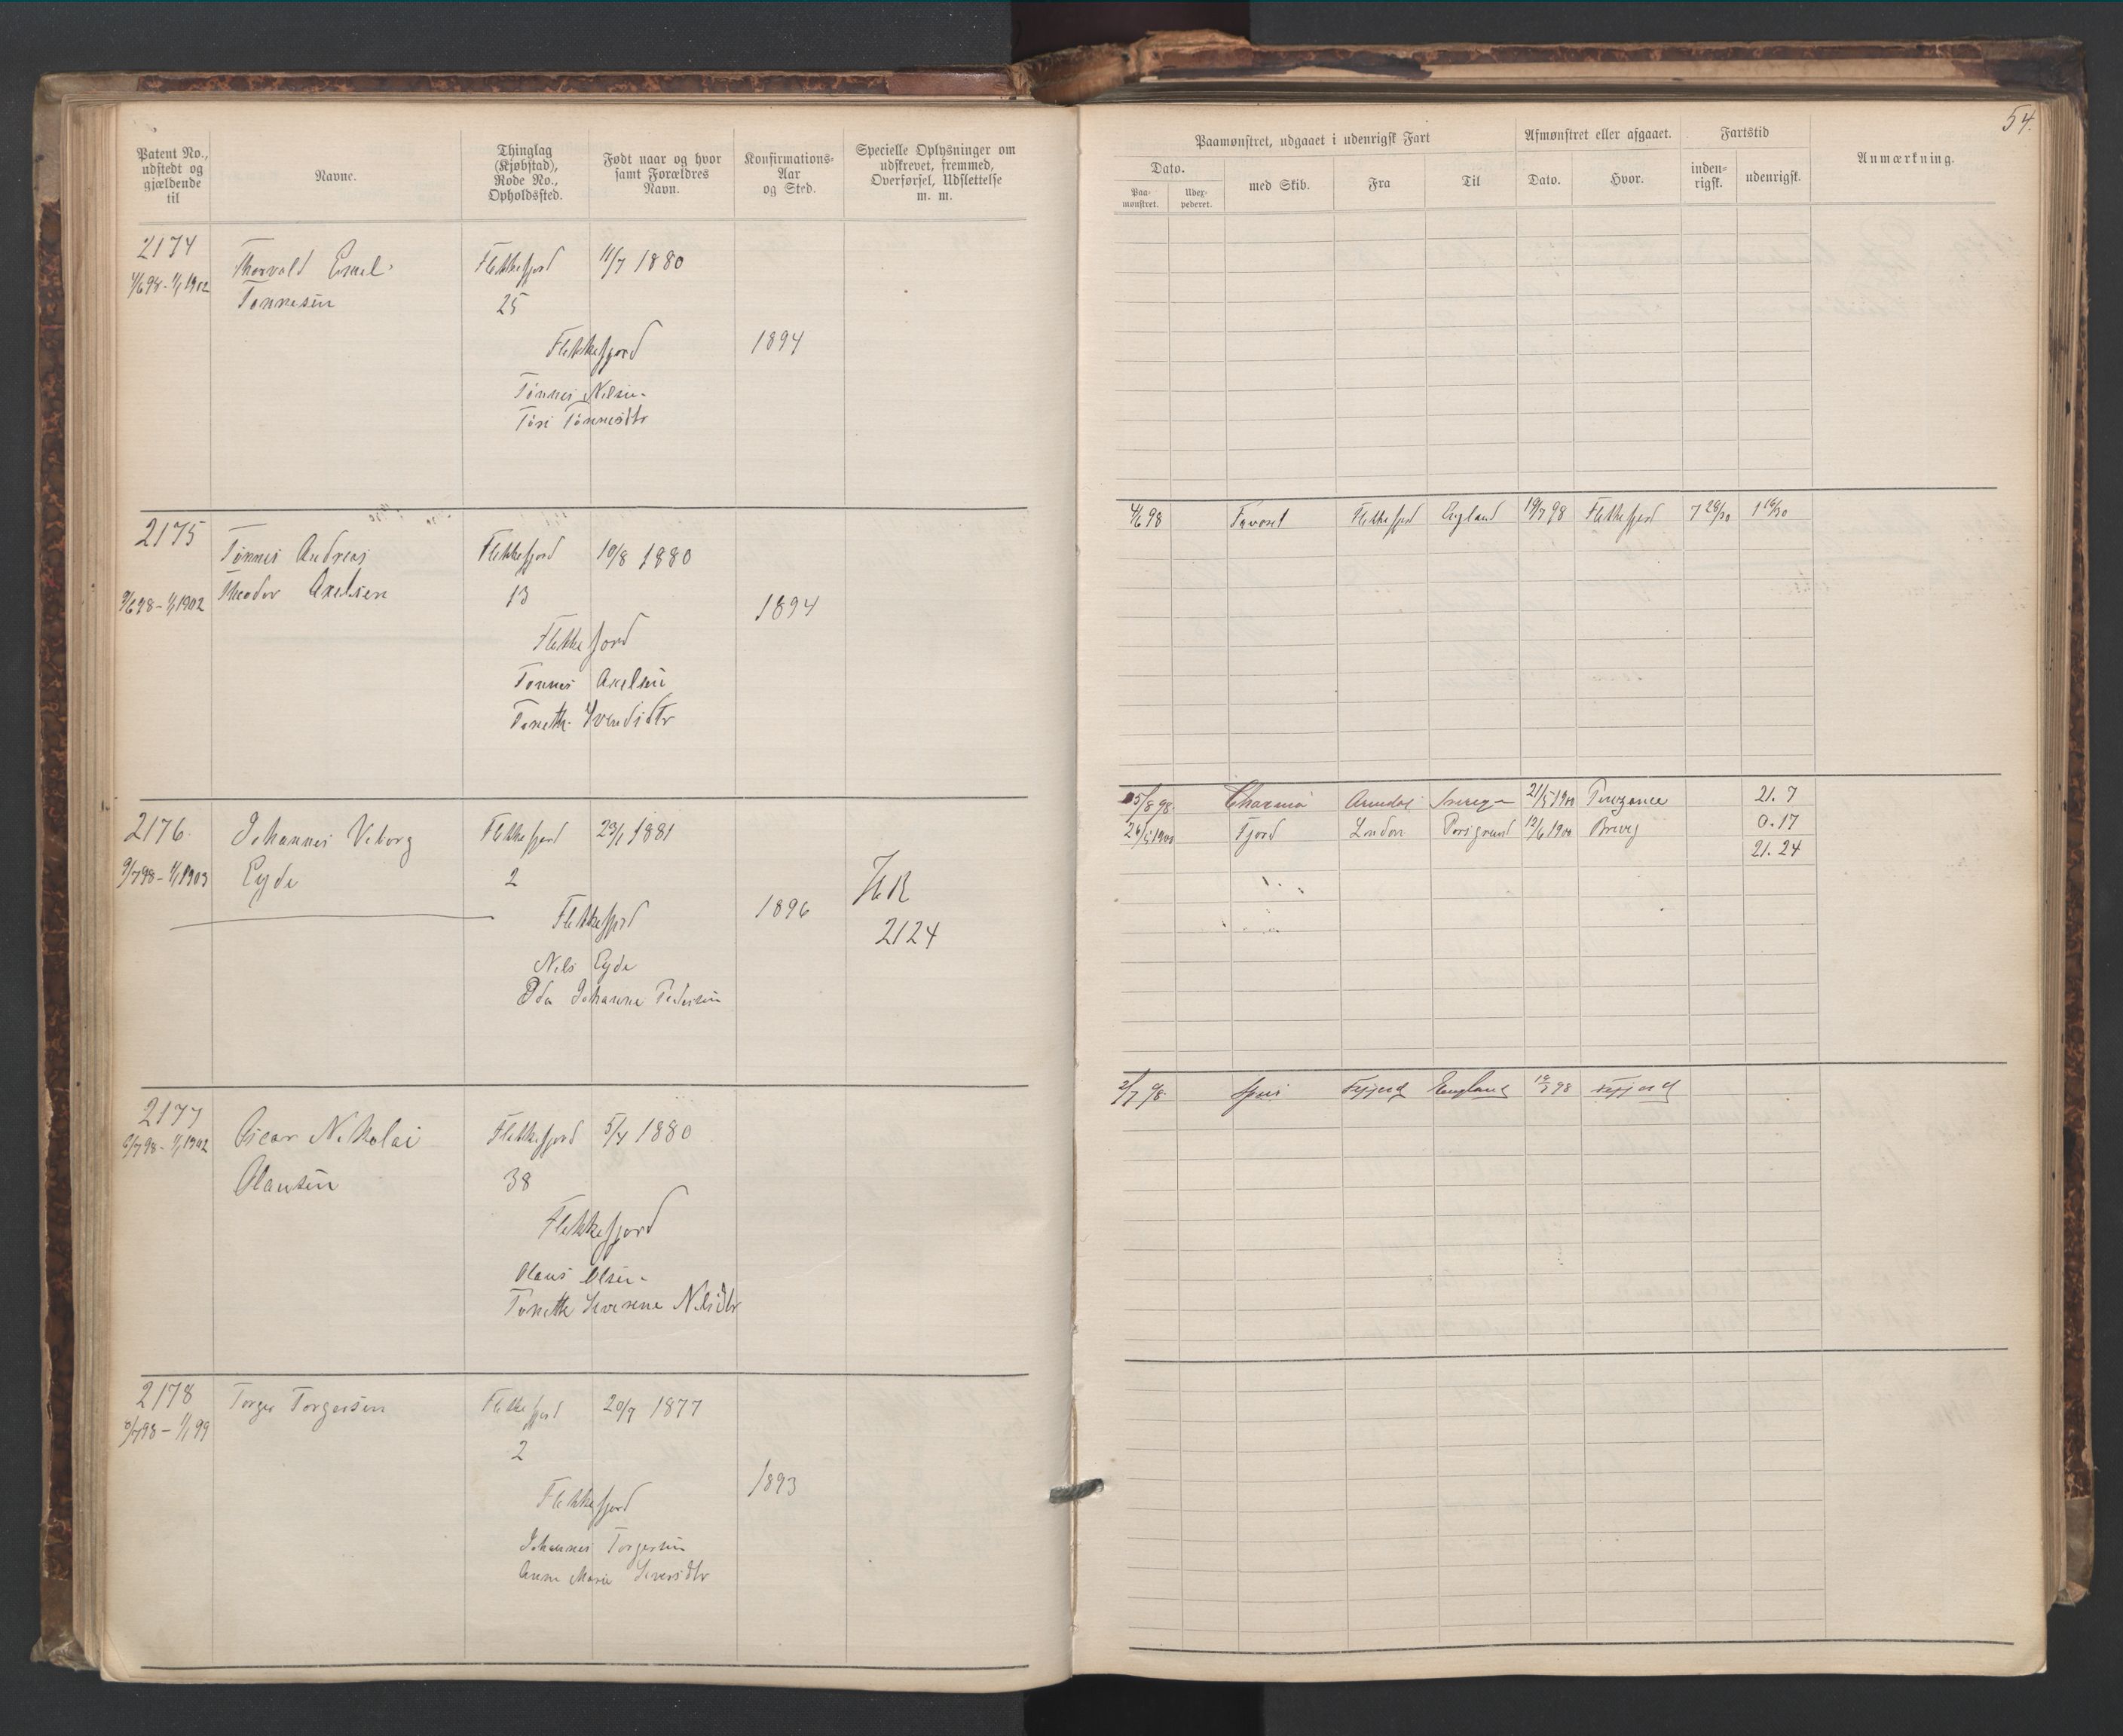 54.
Patent No.,
udstedt og
gjældende
til
Navne.
Thinglag
(Kjøbstad),
Rode No.,
Opholdssted.
Født naar og hvor
samt Forældres
Navn.
Konfirmations-
Aar
og Sted.
Specielle Oplysninger om
udskrevet, fremmed,
Overførsel, Udslettelse
m. m.
Paamønstret, udgaaet i udenrigsk Fart
Dato.
Paa-
mønstret.
Udex-
pederet.
med Skib.
Fra
Til
Afmønstret eller afgaaet.
Dato.
Hvor.
Fartstid
inden-
rigsk.
udenrigsk.
Anmærkning.
2174
4/6 98 - 1/1 1902
Thorvald Emil
Tønnesen
Flekkefjord
25
11/7 1880
Flekkefjord
Tønnes Nilsen
Tønnesdtr
1894
2175
9/6 98 - 1/1 1902
Tønnes Andreas
Theodor Axelsen
Flekkefjord
13
19/8 1880
Flekkefjord
Tønnes Axelsen
Tonette Svendsdtr
1894
4/6 98 Favorit Flekkefjord England 19/7 98 Flekkefjord 7 28/30 1 16/30
2176
9/7 98 - 1/1 1903
Johannes Viborg
Eyde
Flekkefjord
2
23/1 1881
Flekkefjord
Nils Eyde
Ida Johanne Pedersen
1896
HR
2124
5/8 98 Arendal 21/5 1900 Penzance 21. 7
26/5 1900 Fjord London Porsgrund 12/6 1900 Brevig 0. 17
21. 24
2177
6/7 98 - 1/1 1902
Oscar Nikolai
Olausen
Flekkefjord
38
5/4 1880
Flekkefjord
Olaus Olsen
Tonette Severine Nilsdtr
2/7 98 Ffjord England 18/7 98 Ffjord
2178
8/7 98 - 1/1 99
Torger Torgersen
Flekkefjord
2
20/7 1877
Flekkefjord
Johannes Torgersen
Anne Marie Siversdtr
1893